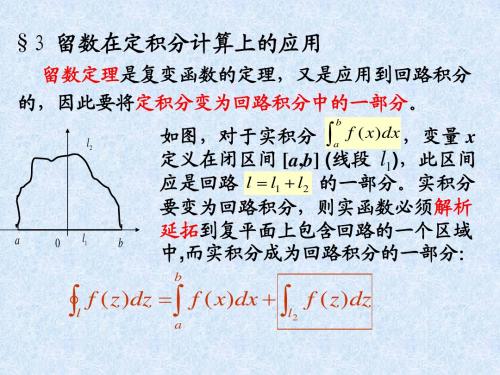 §3 留数在定积分计算上的应用
留数定理是复变函数的定理，又是应用到回路积分
的，因此要将定积分变为回路积分中的一部分。
如图，对于实积分 ∫_a^b f(x)dx ，变量 x
定义在闭区间 [a,b] (线段 l₁)，此区间
应是回路 l = l₁ + l₂ 的一部分。实积分
要变为回路积分，则实函数必须解析
延拓到复平面上包含回路的一个区域
中,而实积分成为回路积分的一部分:
l₂
a 0 l₁ b
∮_l f(z)dz = ∫_a^b f(x)dx + ∫_{l₂} f(z)dz